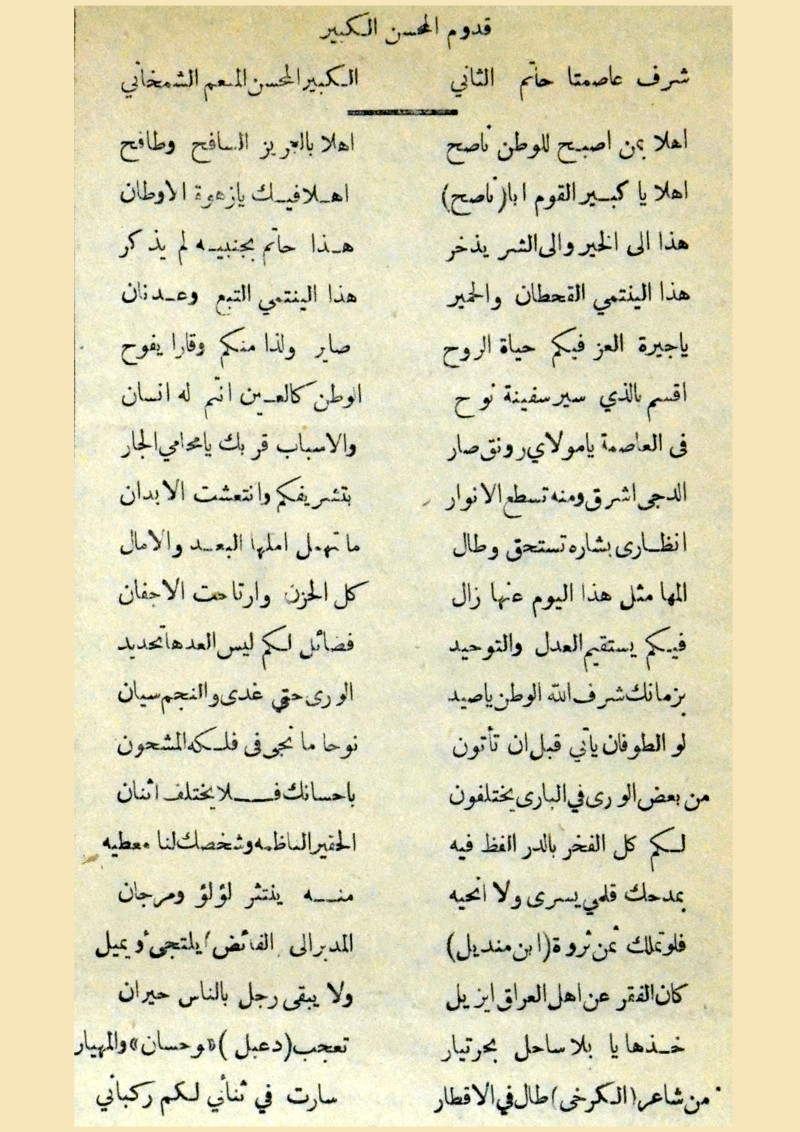 قدوم المحسن الكبير
شرف عاصمتا حاتم الثاني الكبير المحسن المنعم الشمخاني
اهلا بمن اصبح للوطن ناصح اهلا بالعزيز السافح وطافح
اهلا يا كبير القوم ابا (ناصح) اهلا فيك يازهوة الاوطان
هذا الى الخير والى الشر يذخر هذا حاتم بجنبيه لم يذكر
هذا الينتمي القحطان والحمير هذا الينتمي التبع وعدنان
ياجيرة العز فيكم حياة الروح صاير ولذا منكم وقارا يفوح
اقسم بالذي سير سفينة نوح الوطن كالعين انتم له انسان
فى العاصمة يامولاي رونق صار والاسباب قربك يامحامي الجار
الدجى اشرق ومنه تسطع الانوار بتشريفكم وانتعشت الابدان
انظارى بشاره تستحق وطال ما تهمل املها البعد والامال
المها مثل هذا اليوم عنها زال كل الحزن وارتاحت الاجفان
فيكم يستقيم العدل والتوحيد فضائل لكم ليس العدها تحديد
بزمانك شرف الله الوطن ياصيد الورى حتى غدى والنجم سيان
لو الطوفان يأتي قبل ان تأتون نوحا ما نجى فى فلكه المشحون
من بعض الورى في البارى يختلفون باحسانك فلا يختلف اثنان
لكم كل الفخر بالدر الفظ فيه الحقير الناظمه وشخصك لنا معطيه
بمدحك قلمي يسرى ولا انحيه منه ينتثر لؤلؤ ومرجان
فلو تملك ثمن ثروة (ابن منديل) المدبر الى الفائض يلتجى أو يميل
كان الفقر عن اهل العراق ايزيل ولا يبقى رجل بالناس حيران
خذها يا بلا ساحل بحر تيار تعجب (دعبل) «وحسان» والمهيار
من شاعر (الكرخى) طال في الاقطار سارت في ثنائي لكم ركباني